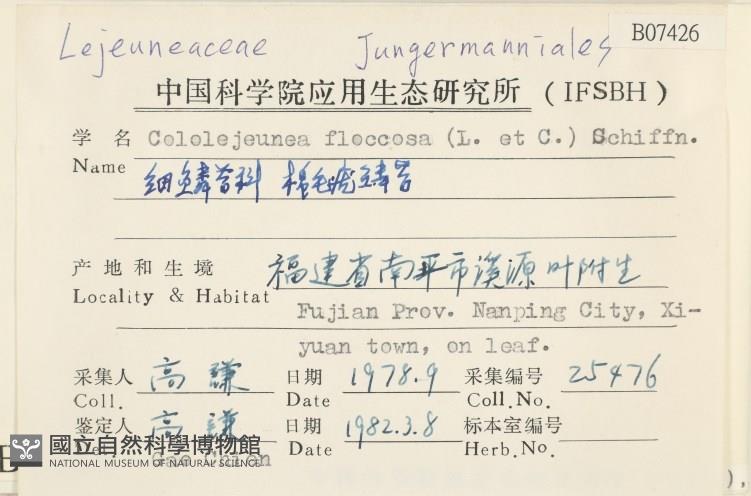 Lejeuneaceae Jungermanniales B07426
中国科学院应用生态研究所 (IFSBH)
学名 Cololejeunea floccosa (L. et C.) Schiffn.
Name
细鳞苔科 棉毛疣鳞苔
产地和生境 福建省南平市溪源 叶附生
Locality & Habitat Fujian Prov. Nanping City, Xi-
yuan town, on leaf.
采集人 高謙 日期 1978.9 采集编号 25476
Coll. Date Coll.No.
鉴定人 高謙 日期 1982.3.8 标本室编号
Det. Gao Chien Date Herb.No.
國立自然科學博物館
NATIONAL MUSEUM OF NATURAL SCIENCE